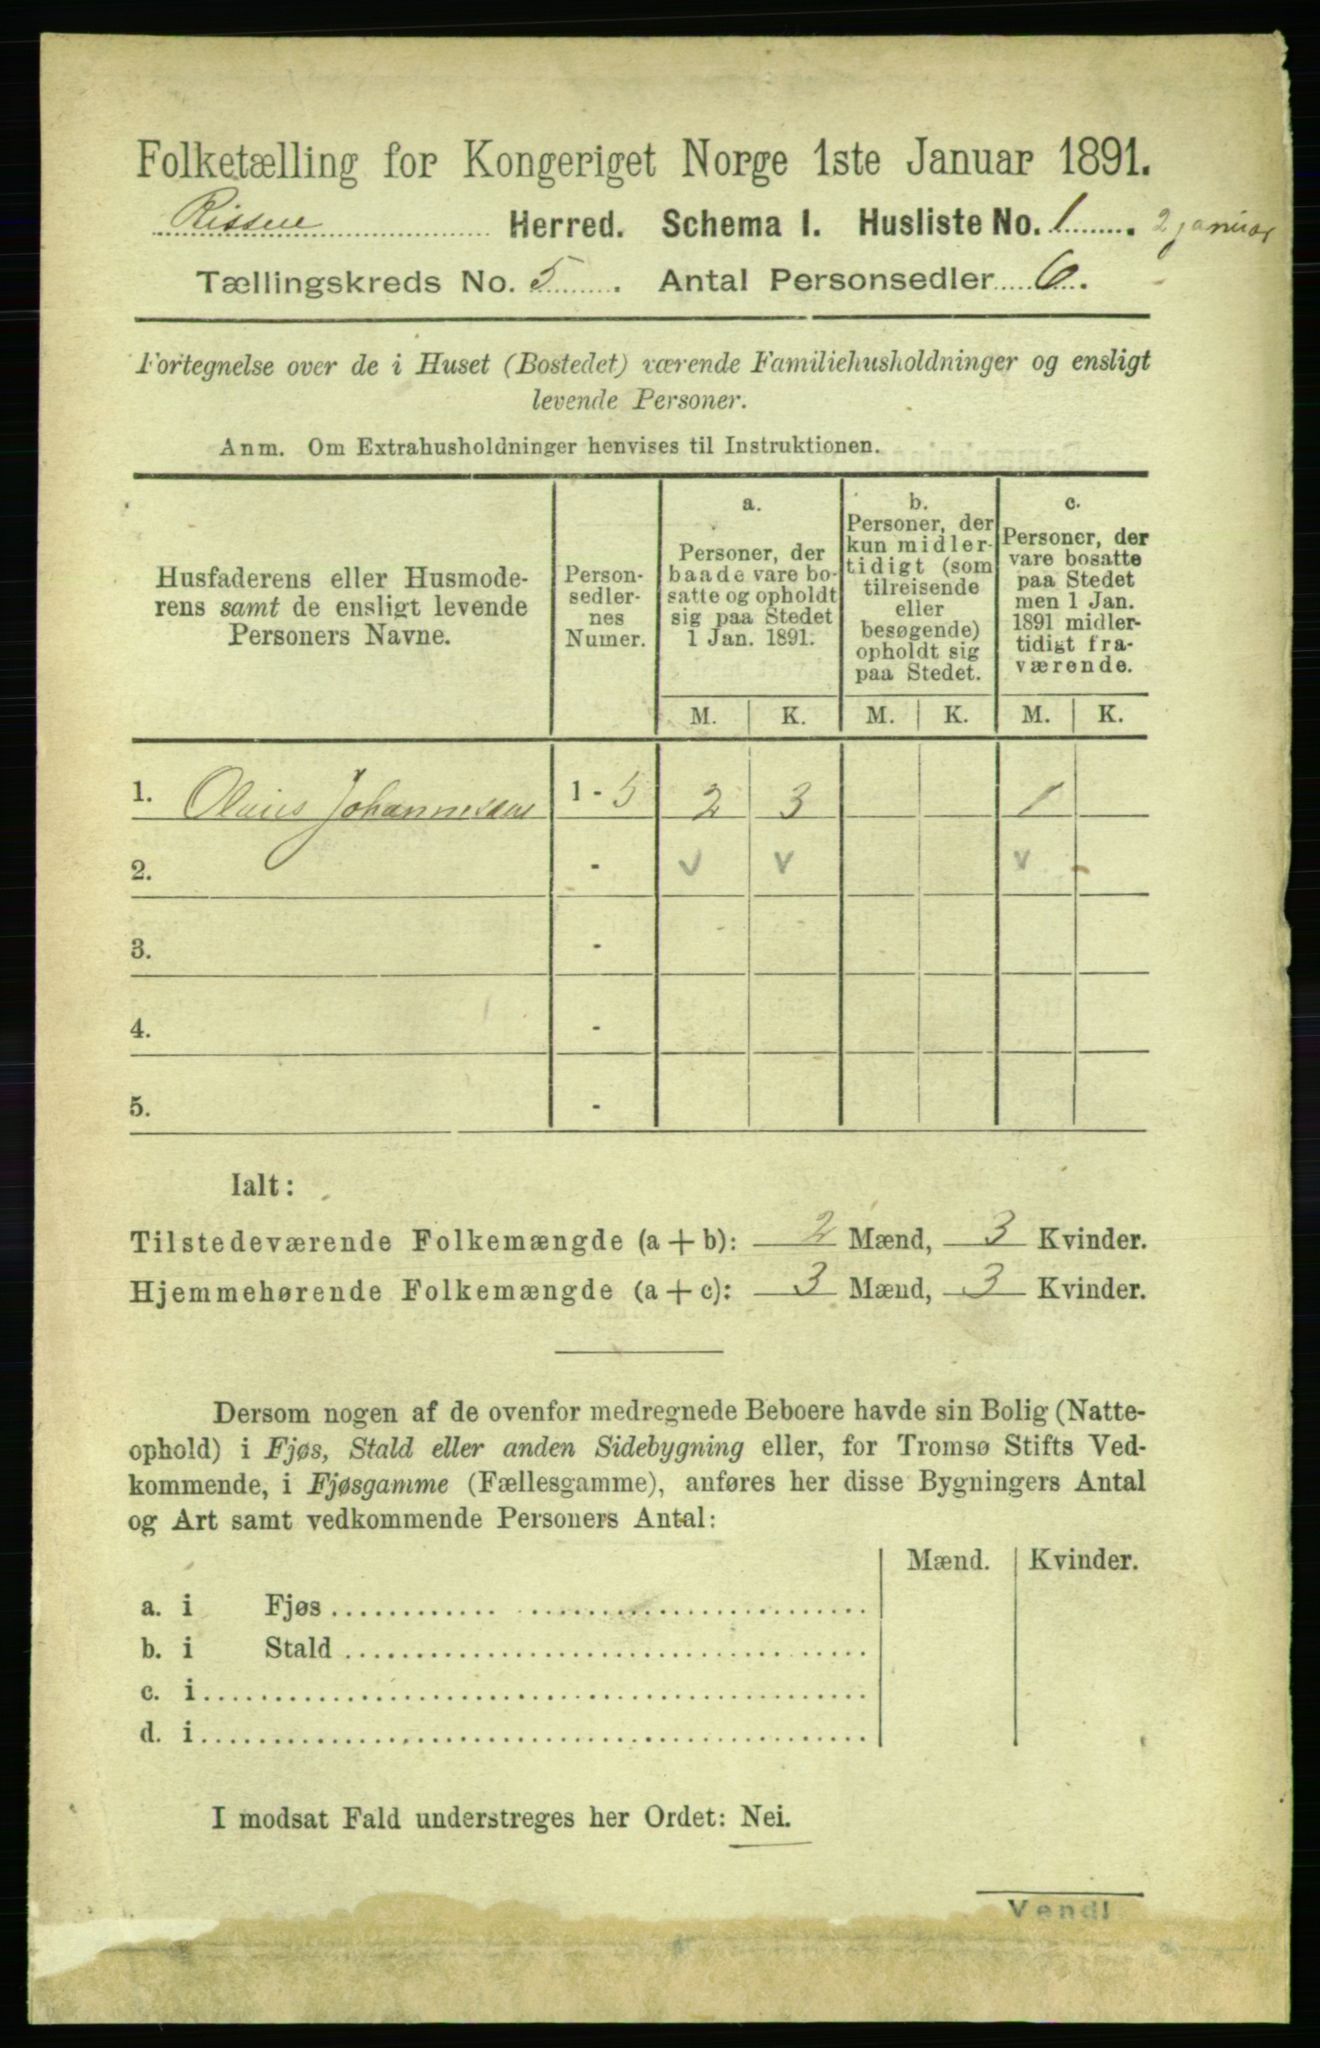 Folketælling for Kongeriget Norge 1ste Januar 1891.
Rissen Herred. Schema I. Husliste No. 1. 2 januar
Tællingskreds No. 5. Antal Personsedler 6.
Fortegnelse over de i Huset (Bostedet) værende Familiehusholdninger og ensligt
levende Personer.
Anm. Om Extrahusholdninger henvises til Instruktionen.
Husfaderens eller Husmode-
rens samt de ensligt levende
Personers Navne.
Person-
sedler-
nes
Numer.
a.
Personer, der
baade vare bo-
satte og opholdt
sig paa Stedet
1 Jan. 1891.
b.
Personer, der
kun midler-
tidigt (som
tilreisende
eller
besøgende)
opholdt sig
paa Stedet.
c.
Personer, der
vare bosatte
paa Stedet
men 1 Jan.
1891 midler-
tidigt fra-
værende.
M. K. M. K. M. K.
1. Olaus Johannessen 1 - 5 2 3 1
2. - v v v
3. -
4. -
5. -
Ialt:
Tilstedeværende Folkemængde (a + b): 2 Mænd, 3 Kvinder.
Hjemmehørende Folkemængde (a + c): 3 Mænd, 3 Kvinder.
Dersom nogen af de ovenfor medregnede Beboere havde sin Bolig (Natte-
ophold) i Fjøs, Stald eller anden Sidebygning eller, for Tromsø Stifts Ved-
kommende, i Fjøsgamme (Fællesgamme), anføres her disse Bygningers Antal
og Art samt vedkommende Personers Antal:
Mænd. Kvinder.
a. i Fjøs
b. i Stald
c. i
d. i
I modsat Fald understreges her Ordet: Nei.
Vend!